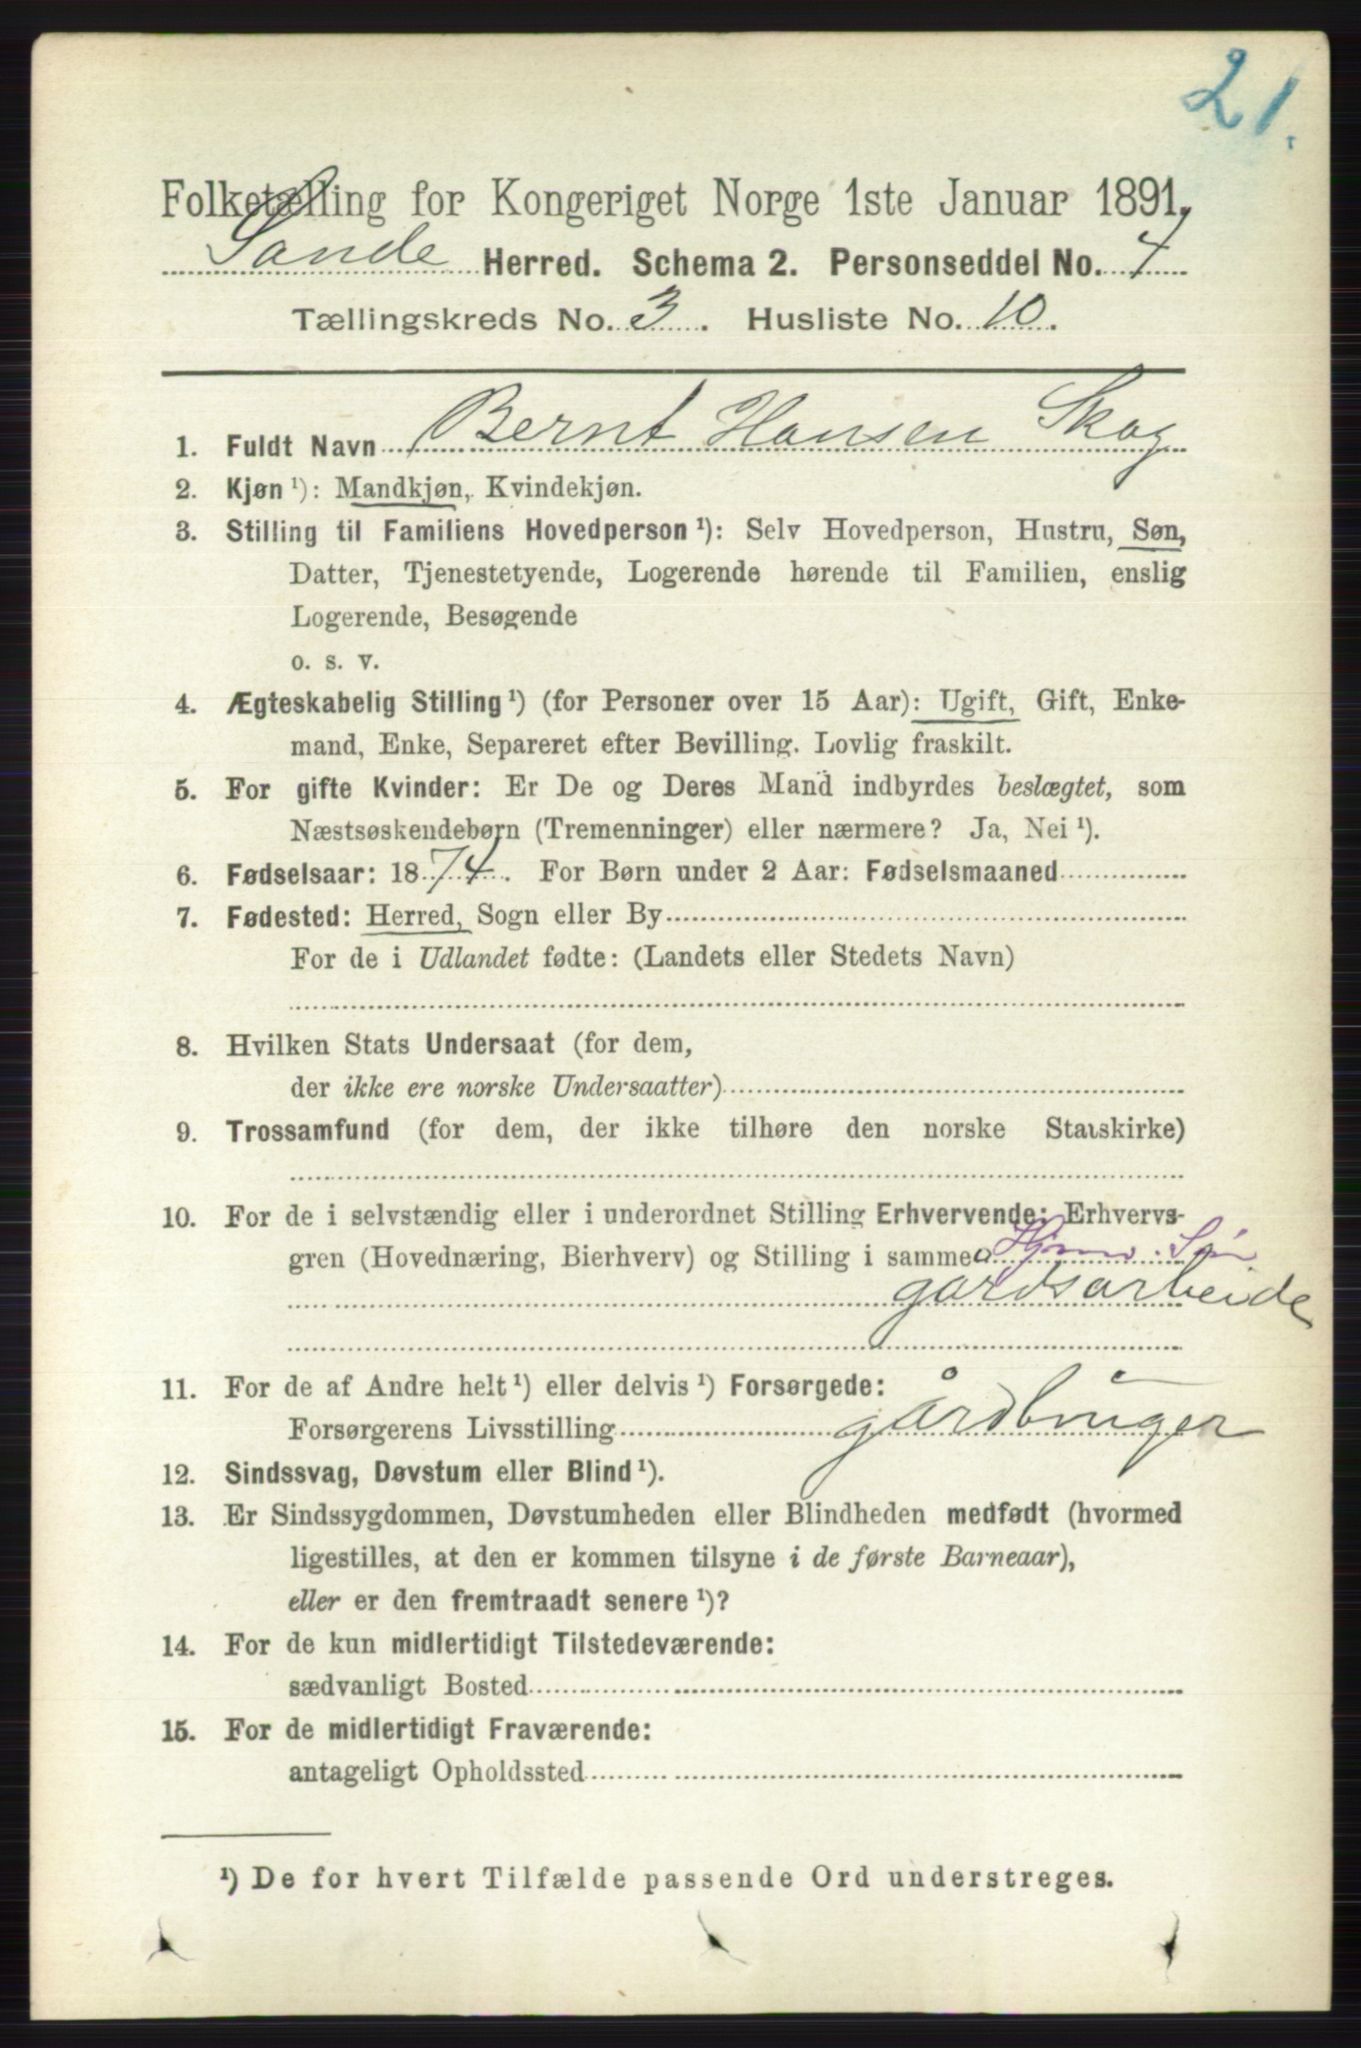 21.
Folketælling for Kongeriget Norge 1ste Januar 1891.
Sande Herred. Schema 2. Personseddel No. 4
Tællingskreds No. 3. Husliste No. 10.
1. Fuldt Navn Bernt Hansen Skog
2. Kjøn ¹): Mandkjøn, Kvindekjøn.
3. Stilling til Familiens Hovedperson ¹): Selv Hovedperson, Hustru, Søn,
Datter, Tjenestetyende, Logerende hørende til Familien, enslig
Logerende, Besøgende
o. s. v.
4. Ægteskabelig Stilling ¹) (for Personer over 15 Aar): Ugift, Gift, Enke-
mand, Enke, Separeret efter Bevilling. Lovlig fraskilt.
5. For gifte Kvinder: Er De og Deres Mand indbyrdes beslægtet, som
Næstsøskendebørn (Tremenninger) eller nærmere? Ja, Nei ¹).
6. Fødselsaar: 1874. For Børn under 2 Aar: Fødselsmaaned
7. Fødested: Herred, Sogn eller By
For de i Udlandet fødte: (Landets eller Stedets Navn)
8. Hvilken Stats Undersaat (for dem,
der ikke ere norske Undersaatter)
9. Trossamfund (for dem, der ikke tilhøre den norske Statskirke)
10. For de i selvstændig eller i underordnet Stilling Erhvervende: Erhvervs-
gren (Hovednæring, Bierhverv) og Stilling i samme Hjmv. Søn
gardsarbeide
11. For de af Andre helt ¹) eller delvis ¹) Forsørgede:
Forsørgerens Livsstilling gårdbruger
12. Sindssvag, Døvstum eller Blind ¹).
13. Er Sindssygdommen, Døvstumheden eller Blindheden medfødt (hvormed
ligestilles, at den er kommen tilsyne i de første Barneaar),
eller er den fremtraadt senere ¹)?
14. For de kun midlertidigt Tilstedeværende:
sædvanligt Bosted
15. For de midlertidigt Fraværende:
antageligt Opholdssted
¹) De for hvert Tilfælde passende Ord understreges.